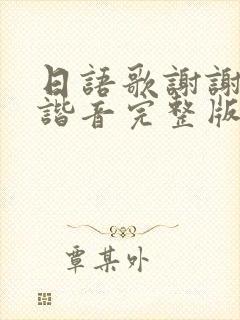 日語歌謝謝
諧音完整版
覃某外